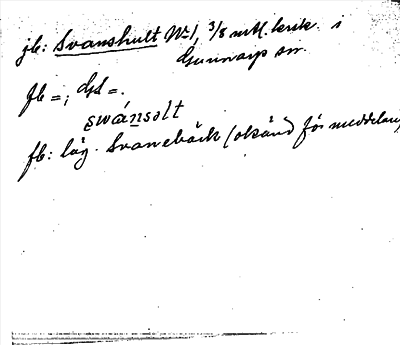 jb: Svanshult № 1, 3/8 mtl. krik. i
Gunnarp sn.
fb =; Gd =.
swánsolt
fb: låg. Svanebäck (okänd för meddelar